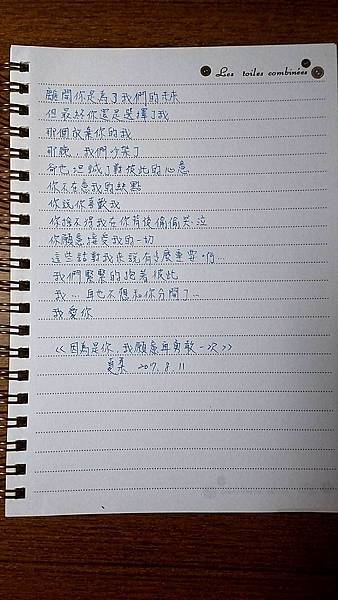 Les toiles combinées
離開你是為了我們的未來
但最好你還是選擇了我
那個放棄你的我
那晚，我們吵架了
卻也坦誠了對彼此的心意
你不在意我的缺點
你說你喜歡我
你捨不得我在你背後偷偷哭泣
你願意接受我的一切
這些話對我來說有多麼重要，你
我們緊緊的抱著彼此
我…再也不想和你分開了…
我愛你
《因為是你，我願意再勇敢一次》
夏柔 2017.8.11